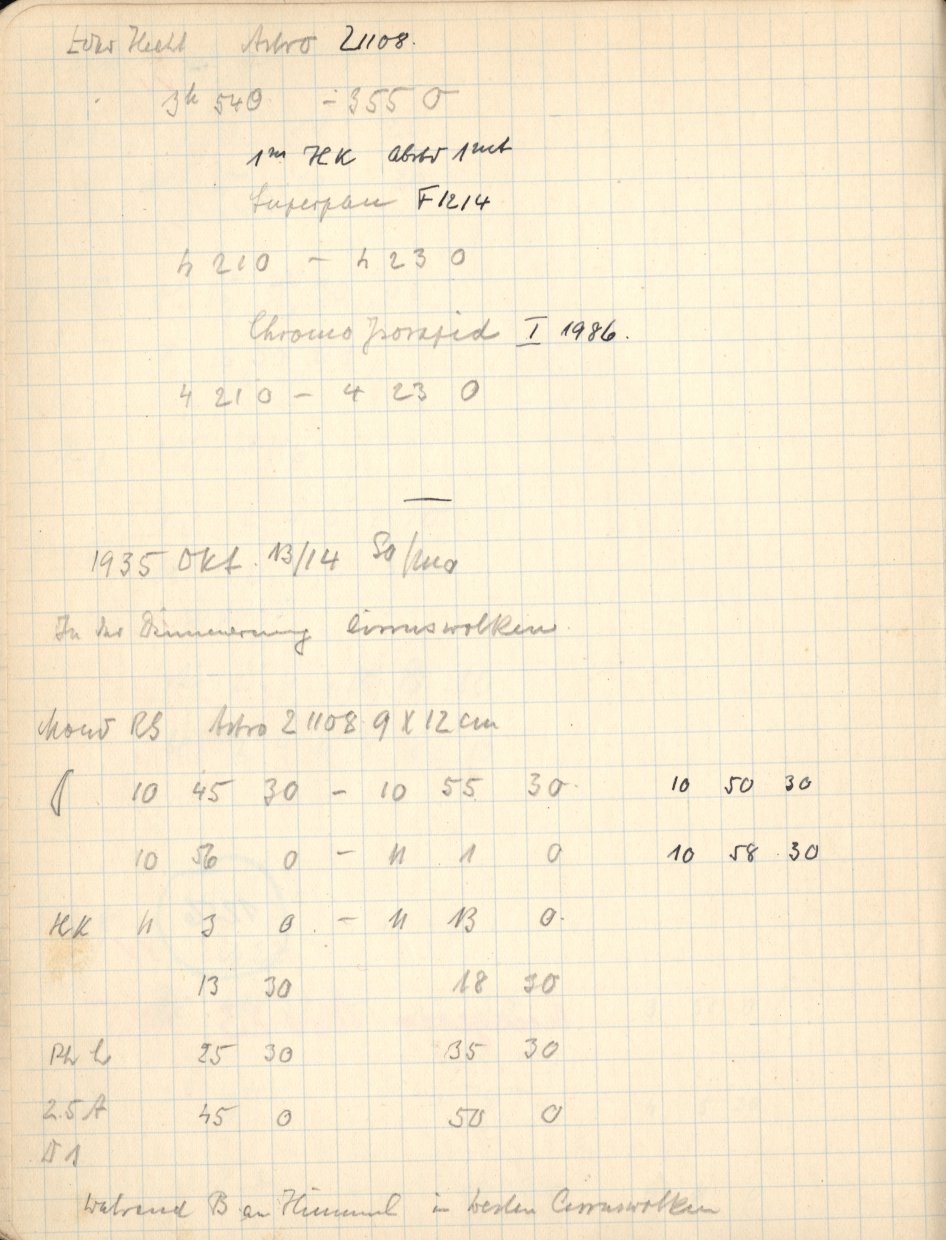 Astro 21108.
3h 54 0 - 3 55 0
1m HK
Superpan F1214
4 21 0 - 4 23 0
Chromo Isorapid I 1986.
4 21 0 - 4 23 0
1935 Okt. 13/14 So/Mo
In der Dämmerung Cirruswolken
Mond Astro 21108 9 X 12 cm
10 45 30 - 10 55 30 10 50 30
10 56 0 - 11 1 0 10 58 30
HK 11 3 0 - 11 13 0
13 30 18 30
25 30 35 30
45 0 50 0
während B am Himmel in Westen Cirruswolken